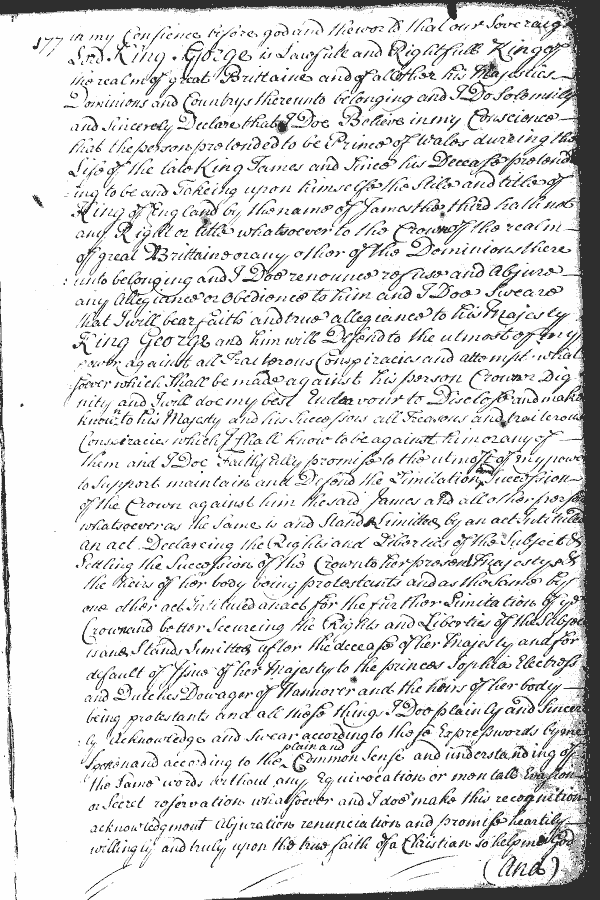 177 in my Consience before god and the world that our Soveraign
Lord King George is Lawfull and Rightfull King of
the realm of great Brittaine and of all other his Majesties
Dominions and Countrys thereunto belonging and I Do Solemnly
and sincerely Declare that I Doe Believe in my Conscience
that the person pretended to be Prince of Wales dureing the
Life of the late King James and since his Decease pretend
ing to be and Takeing upon himselfe the Stile and title of
King of England by the name of James the third hath not
any Right or title whatsoever to the Crown of the realm
of great Brittaine or any other of the Dominions there
unto belonging and I Doe renounce refuse and Abjure
any Allegiance or Obedience to him and I Doe Sweare
that I will bear faith and true allegiance to his Majesty
King George and him will Defend to the utmost of my
power against all Traiterous Conspiracies and attempt what
soever which shall be made against his person Crown or Dig
nity and I will doe my best Endeavour to Disclose and make
known to his Majesty and his Successors all Treasons and traiterous
Conspiracies which I shall know to be against him or any of
them and I Doe Faithfully promise to the utmost of my power
to Support maintain and Defend the Limitation Succession
of the Crown against him the said James and all other persons
whatsoever as the same is and Stands Limitted by an act Intituled
an act Declareing the Rights and Liberties of the Subject &
Settling the Succession of the Crown to her present Majesty &
the heirs of her body being protestants and as the same by
one other act Intituled an act for the further Limitation of ye
Crown and better Secureing the Rights and Liberties of the Subject
is and Stands Limitted after the decease of her Majesty and for
default of Issue of her Majesty to the princes Sophia Electress
and Dutches Dowager of Hannover and the heirs of her body
being protestants and all these things I Doe plainly and sincere
ly Acknowledge and swear according to these Express words by me
Spoken and according to the plain and Common Sense and understanding of
the same words without any Equivocation or mentall Evasion
or Secret reservation whatsoever and I doe make this recognition
acknowledgment Abjuration renunciation and promise heartily
willingly and truly upon the true faith of a Christian so help me God
(And)